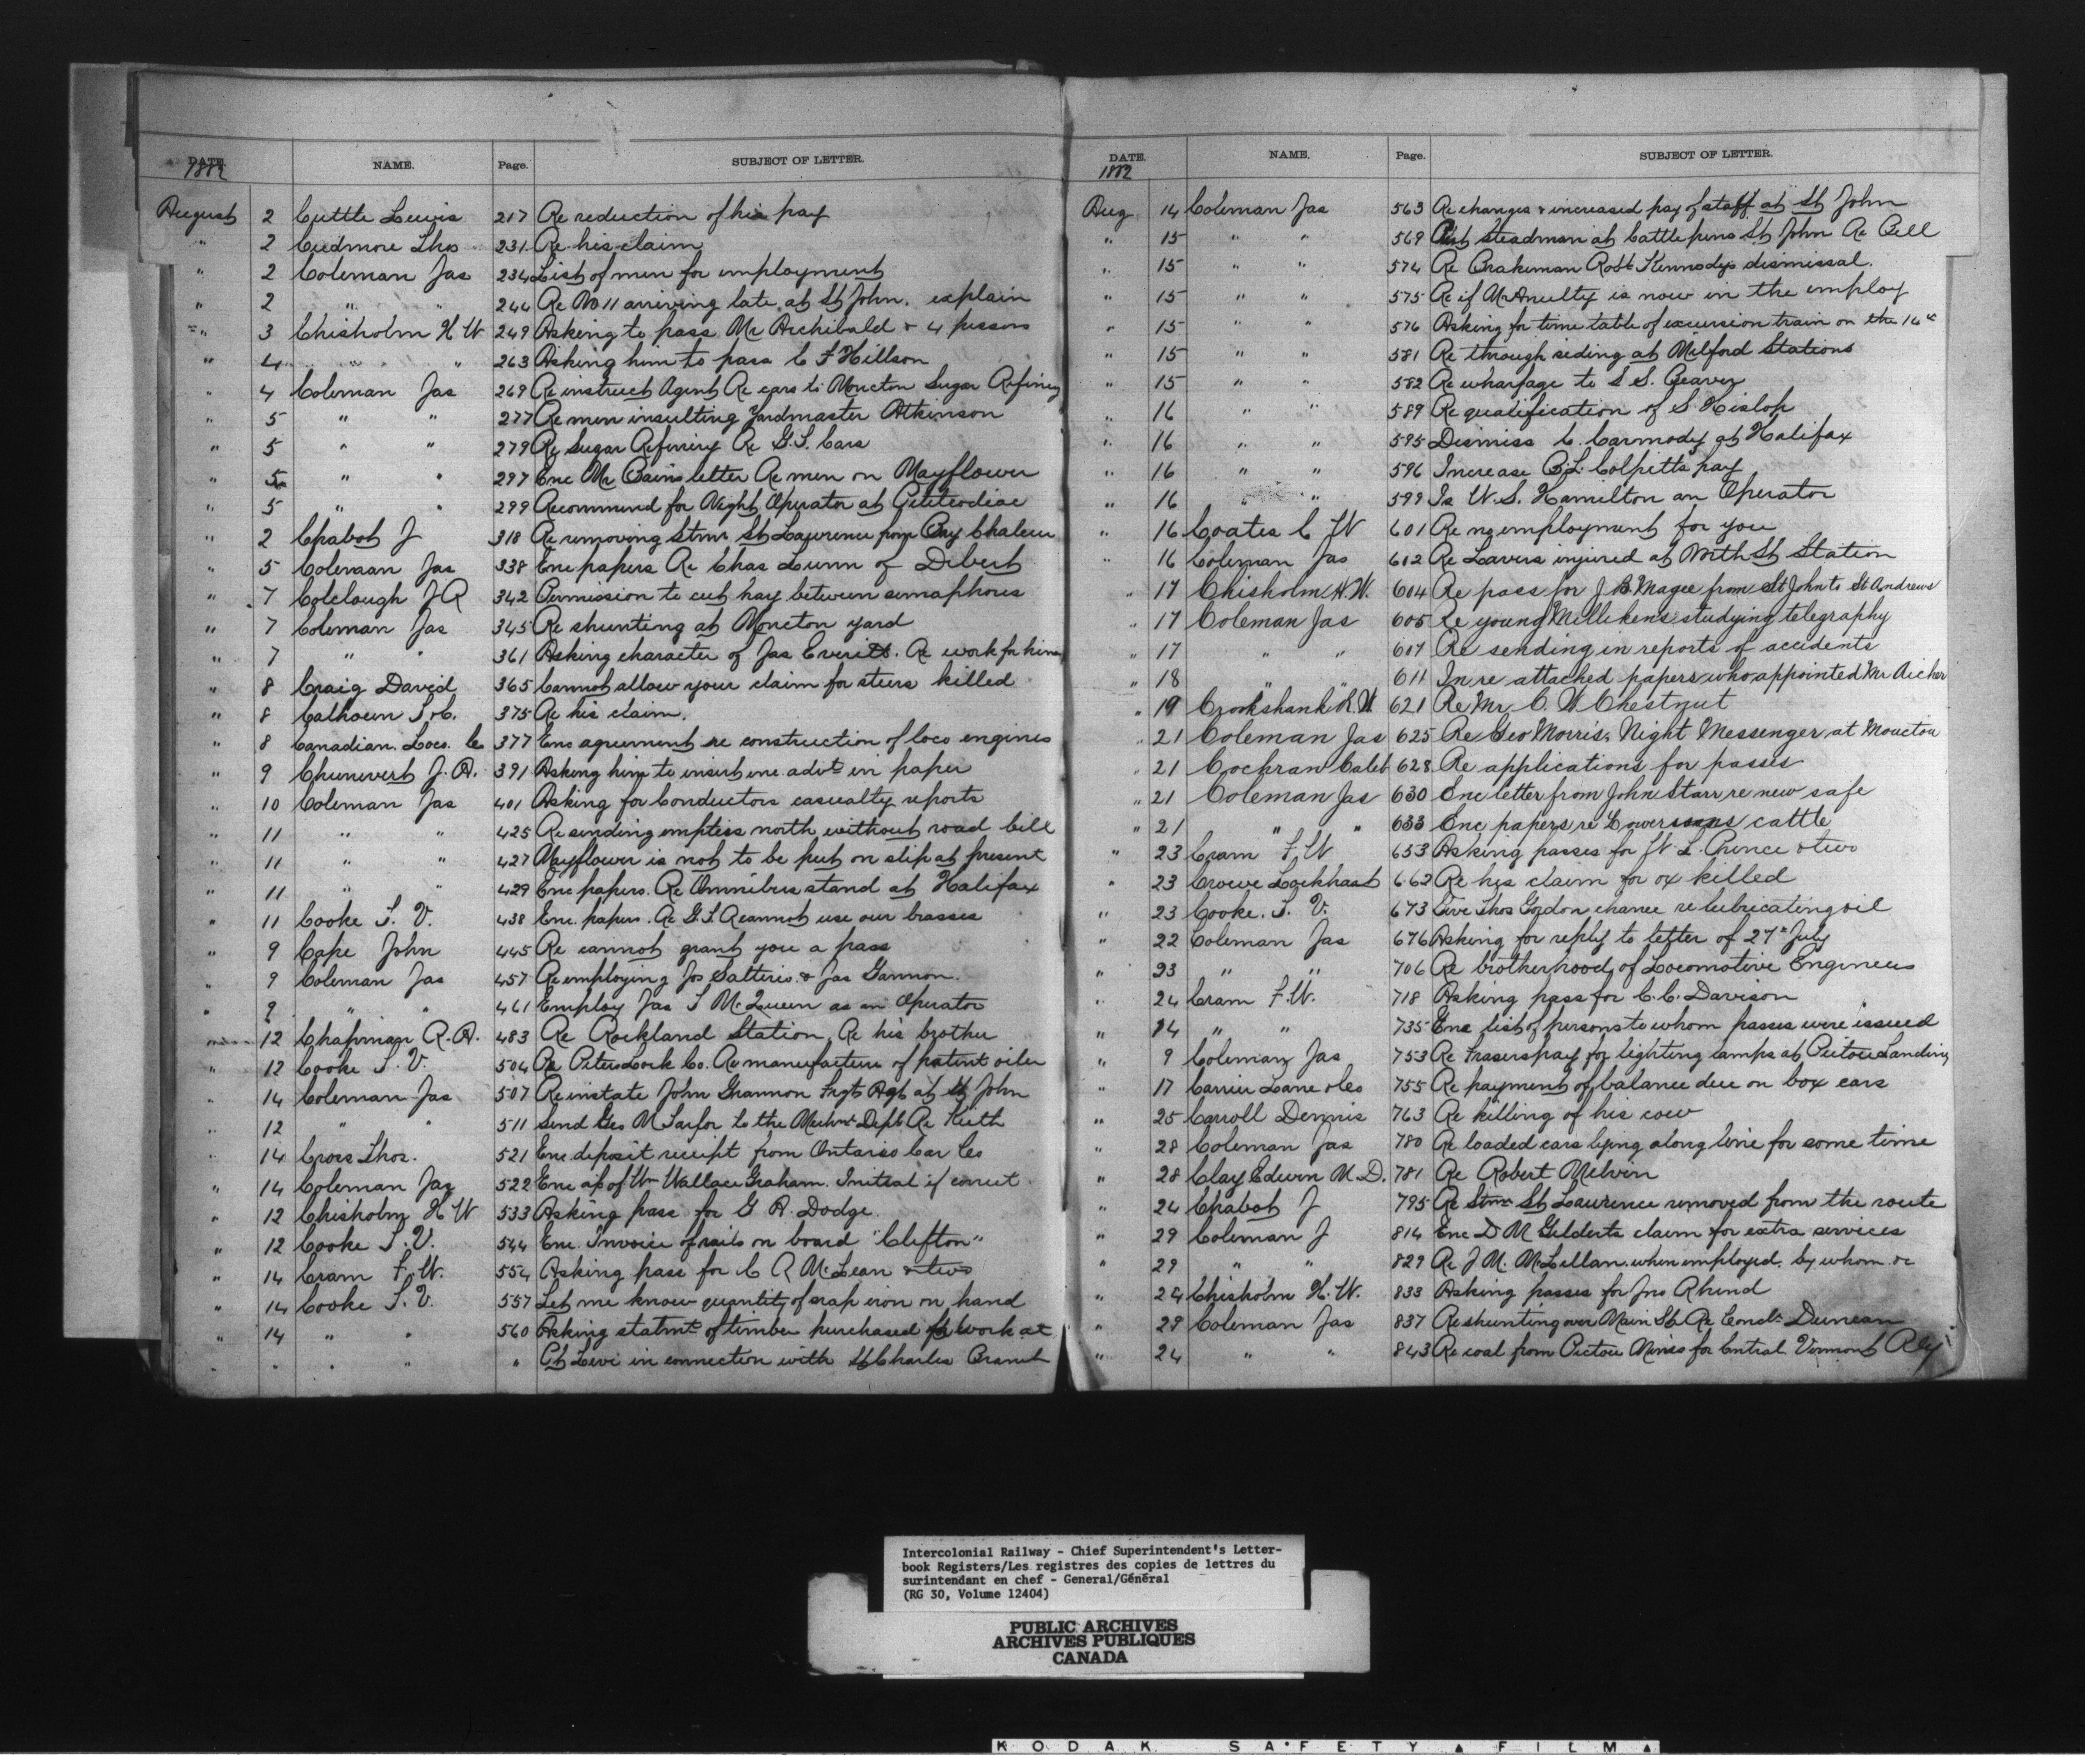 DATE. NAME. Page. SUBJECT OF LETTER.
1882
August 2 Cuttle Lewis 217 Re reduction of his pay
" 2 Cudmore Thos 231 Re his claim
" 2 Coleman Jas 234 List of men for employment
" 2 " " 244 Re No 11 arriving late at St John. explain
" 3 Chisholm H W 249 Asking to pass Mr Archibald & 4 
" 4 " " 263 Asking him to pass C F Hillson
" 4 Coleman Jas 269 Re instruct Agent Re cars to Moncton Sugar Refinery
" 5 " " 277 Re men insulting Yardmaster Atkinson
" 5 " " 279 Re Sugar Refinery Re G.T. Cars
" 5 " " 297 Enc Mr Bains letter Re men on Mayflower
" 5 " " 299 Recommend for Night Operator at Petitcodiac
" 2 Chabot J 318 Re removing Stmr St Lawrence from Bay Chaleur
" 5 Coleman Jas 338 Enc papers Re Chas Lunn of Debert
" 7 Colclough J R 342 Permission to cut hay between semaphores
" 7 Coleman Jas 345 Re shunting at Moncton yard
" 7 " " 361 Asking character of Jas Everitt. Re work for him
" 8 Craig David 365 Cannot allow your claim for steers killed
" 8 Calhoun 375 Re his claim.
" 8 Canadian Loco. Co 377 Enc agreement re construction of loco engines
" 9 J. A. 391 Asking him to insert enc advt in paper
" 10 Coleman Jas 401 Asking for Conductors casualty reports
" 11 " " 425 Re sending empties north without road bill
" 11 " " 427 Mayflower is not to be put on slip at present
" 11 " " 429 Enc papers. Re Omnibus stand at Halifax
" 11 Cooke T. V. 438 Enc. papers. Re G.T.R cannot use our brasses
" 9 Cape John 445 Re cannot grant you a pass
" 9 Coleman Jas 457 Re employing Jos Satteris & Jas Gannon.
" 9 " " 461 Employ Jas T McQueen as an Operator
" 12 Chapman R. A. 483 Re Rockland Station, Re his brother
" 12 Cooke T. V. 504 Re Peters Lock Co. Re manufacture of patent oiler
" 14 Coleman Jas 507 Reinstate John Grannon Frgt Agt at St John
" 12 " " 511 Send Geo M to the Mechnl Dept Re Keith
" 14 Cross Thos. 521 Enc deposit receipt from Ontario Car Co
" 14 Coleman Jas 522 Enc of Wm Wallace Graham. Initial if correct
" 12 Chisholm H W 533 Asking pass for G A. Dodge.
" 12 Cooke T. V. 544 Enc. Invoice of rails on board "Clifton"
" 14 Cram F. W. 554 Asking pass for C R McLean & two
" 14 Cooke T. V. 557 Let me know quantity of scrap iron on hand
" 14 " " 560 Asking statmt of timber purchased for work at
" " " " " Pt Levi in connection with St Charles Branch
DATE. NAME. Page. SUBJECT OF LETTER.
1882
Aug 14 Coleman Jas 563 Re changes & increased pay of staff at St John
" 15 " " 569 Put steadman at Cattle pens St John Re Bell
" 15 " " 574 Re Brakeman Robt Kennedys dismissal.
" 15 " " 575 Re if McAnulty is now in the employ
" 15 " " 576 Asking for time table of excursion train on the 16th
" 15 " " 581 Re through siding at Milford Stations
" 15 " " 582 Re wharfage to S S. Beaver
" 16 " " 589 Re qualification of S. Hislop
" 16 " " 595 Dismiss C. Carmody at Halifax
" 16 " " 596 Increase B.L. Colpitts pay
" 16 " " 599 Is W. S. Hamilton an Operator
" 16 Coates C W 601 Re no employment for you
" 16 Coleman Jas 602 Re Lavers injured at North St Station
" 17 Chisholm H. W. 604 Re pass for J B. Magee from St John to St Andrews
" 17 Coleman Jas 605 Re young Millikens studying telegraphy
" 17 " " 607 Re sending in reports of accidents
" 18 " " 611 In re attached papers who appointed Mr Archer
" 19 Crookshank R. W 621 Re Mr C. W. Chestnut
" 21 Coleman Jas 625 Re Geo Morris, Night Messenger at Moncton
" 21 Cochran Caleb 628 Re applications for passes
" 21 Coleman Jas 630 Enc letter from John Starr re new safe
" 21 " " 633 Enc papers re cattle
" 23 Cram F. W 653 Asking passes for W. L. Prince & two
" 23 Crowe Lockhart 662 Re his claim for ox killed
" 23 Cooke. T. V. 673 Give Thos Gordon chance re lubricating oil
" 22 Coleman Jas 676 Asking for reply to letter of 27th July
" 23 " " 706 Re brotherhood of Locomotive Engineers
" 24 Cram F. W. 718 Asking pass for C. C. Davison
" 14 " " 735 Enc list of persons to whom passes were issued
" 9 Coleman Jas 753 Re Frasers pay for lighting lamps at Pictou Landing
" 17 Carrier Lane & Co 755 Re payment of balance due on box cars
" 25 Carroll Dennis 763 Re killing of his cow
" 28 Coleman Jas 780 Re loaded cars lying along line for some time
" 28 Clay Edwin M. D. 781 Re Robert Melvin
" 24 Chabot J 795 Re Stmr St Lawrence removed from the route
" 29 Coleman J 814 Enc D M Gelderts claim for extra services
" 29 " " 829 Re J M. McLellan. when employed. by whom &c
" 24 Chisholm H. W. 833 Asking passes for Jno Rhind
" 29 Coleman Jas 837 Re shunting over Main St Re Condr Duncan
" 24 " " 843 Re coal from Pictou Mines for Central Vermont Rly
Intercolonial Railway - Chief Superintendent's Letter-
book Registers/Les registres des copies de lettres du
surintendant en chef - General/Général
(RG 30, Volume 12404)
PUBLIC ARCHIVES
ARCHIVES PUBLIQUES
CANADA
KODAK SAFETY FILM